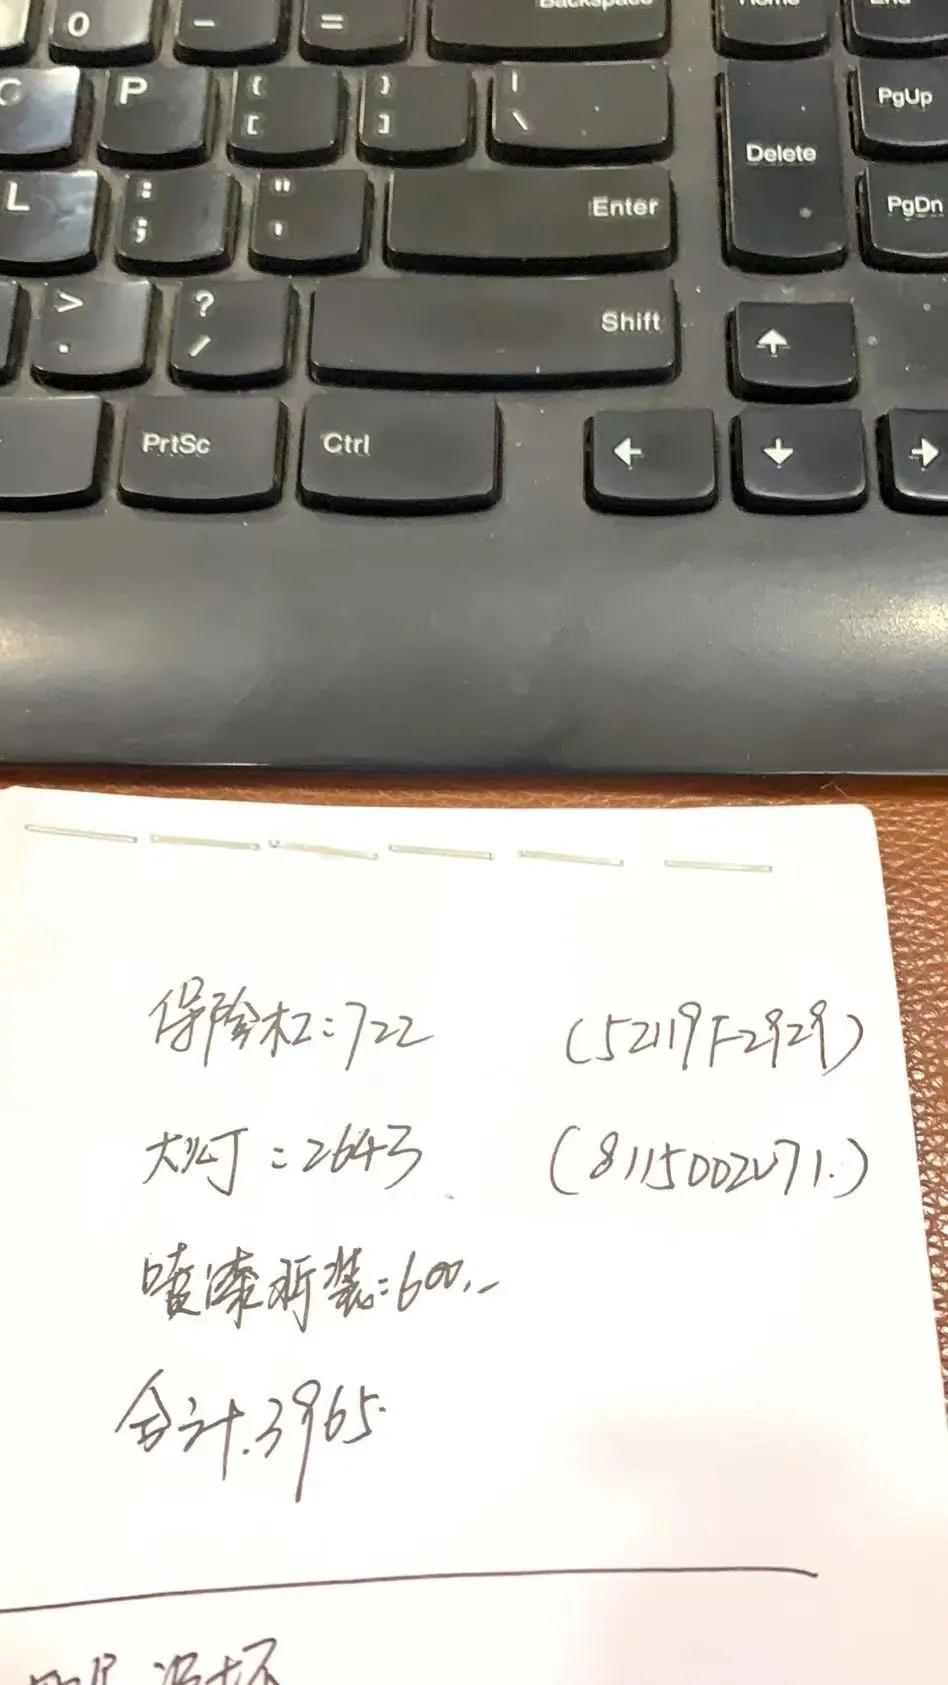 0 - = Backspace Home End
P { [ } ] | \ Delete PgUp
L : ; " ' Enter PgDn
> . ? / Shift ↑
PrtSc Ctrl ← ↓ →
保险杠:722 (52119F2929)
大灯:2643 (8115002V71.)
喷漆拆装:600.-
合计.3965.